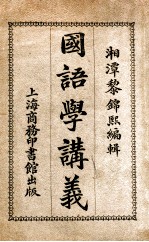 湘潭黎錦熙編輯
國語學講義
上海商務印書館出版